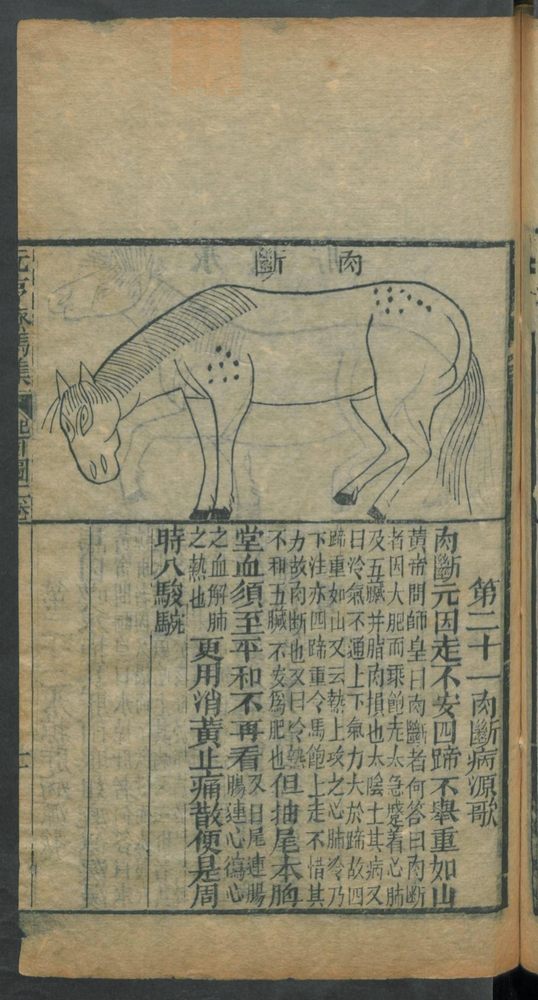 肉斷
第二十一肉斷病源歌
肉斷元因走不安四蹄不舉重如山
黃帝問師皇曰肉斷者何答曰肉斷
者因大肥而乘飽走太急蹙着心肺
及五臟并脂肉損也太陰土其病又
曰冷氣不通上下氣力大於蹄故四
蹄重如山又云熱上攻之心肺冷乃
下注亦四蹄重令馬飽上走不惜其
力故肉斷也又曰冷熱
不和五臟不安爲肥也
但抽尾本胷
堂血須至平和不再看
又曰尾連腸
腸連心瀉心
之血解肺
之熱也
更用消黃止痛散便是周
時八駿駹
元亨療馬集